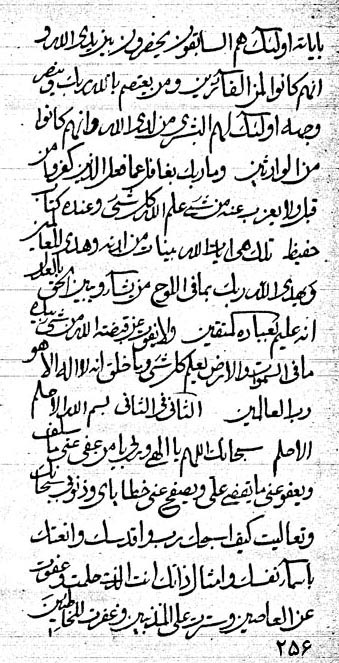 بایاته اولئک هم السابقون یحضرون بین یدی الله و
انهم کانوا لمن الفائزین و من یعتصم بالله ربک و ینصر
وجهه اولئک لهم البشری من لدی الله و انهم کانوا
من الوارثین و ما ربک بغافل عما فعل الذین کفروا من
قبل و لا یعزب عنه من شیء علم الله کل شیء و عنده کتاب
حفیظ تلک هی ایات الله بینات من لدنه و هدی للعالمین
و یهدی الله ربک بما فی اللوح من یشاء و یبین الحق بالعدل
انه علیم بعباده المتقین و لا یفوت عن قبضته الله من شیء بیده
ما فی السموات و الارض یعلم کل شیء و ما خلق انه لا اله الا هو
رب العالمین الثانی فی الثانی بسم الله الاحلم
الاحلم سبحانک اللهم یا الهی و ربی یا من عفی عنی ما سلف
و یعفو عنی ما یقضی علی و یصفح عنی خطایای و ذنوبی سبحانک
و تعالیت کیف اسبحک یا رب و اقدسک و انعتک
باسماء نفسک و امثال ذاتک انت الذی حلمت و عفوت
عن العاصین و سترت علی المذنبین و غفرت للخاطئین
۲۵۶